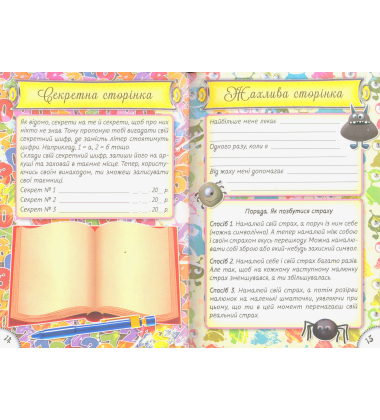 Секретна сторінка
Як відомо, секрети на те й секрети, щоб про них
ніхто не знав. Тому пропоную тобі вигадати свій
секретний шифр, де замість літер стоятимуть
цифри. Наприклад, 1 = а, 2 = б тощо.
Склади свій секретний шифр, запиши його на арку-
ші та заховай в таємне місце. Тепер, користу-
ючись своїм винаходом, ти зможеш записувати
свої таємниці.
Секрет № 1 20 р.
Секрет № 2 20 р.
Секрет № 3 20 р.
14
Жахлива сторінка
Найбільше мене лякає
Одного разу, коли я
Від жаху мені допомагає
Порада. Як позбутися страху
Спосіб 1. Намалюй свій страх, а поруч із ним себе
(можна символічно). А тепер намалюй між собою
і своїм страхом якусь перешкоду. Можна намалю-
вати собі зброю або який-небудь захисний символ.
Спосіб 2. Намалюй себе і свій страх багато разів.
Але так, щоб на кожному наступному малюнку
страх зменшувався, а ти збільшувалась.
Спосіб 3. Намалюй свій страх, а потім розірви
малюнок на маленькі шматочки, уявляючи при
цьому, що ти в цей момент перемагаєш свій
реальний страх.
15